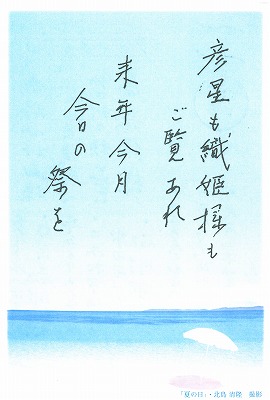 彦星も織姫様も
ご覧あれ
来年今月
今日の祭を
「夏の日」・北島 清隆 撮影